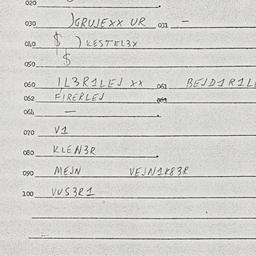 020
030 )GRUJEXX UR 031 —
040 $ ) KESTKL3X
050 $
060 IL3R1LEJ XX 061 BEJD1R1L
062 FIRERLEJ 063
064 —
070 V1
080 KLEN3R
090 MEJN VEJN1K83R
100 VUS3R1